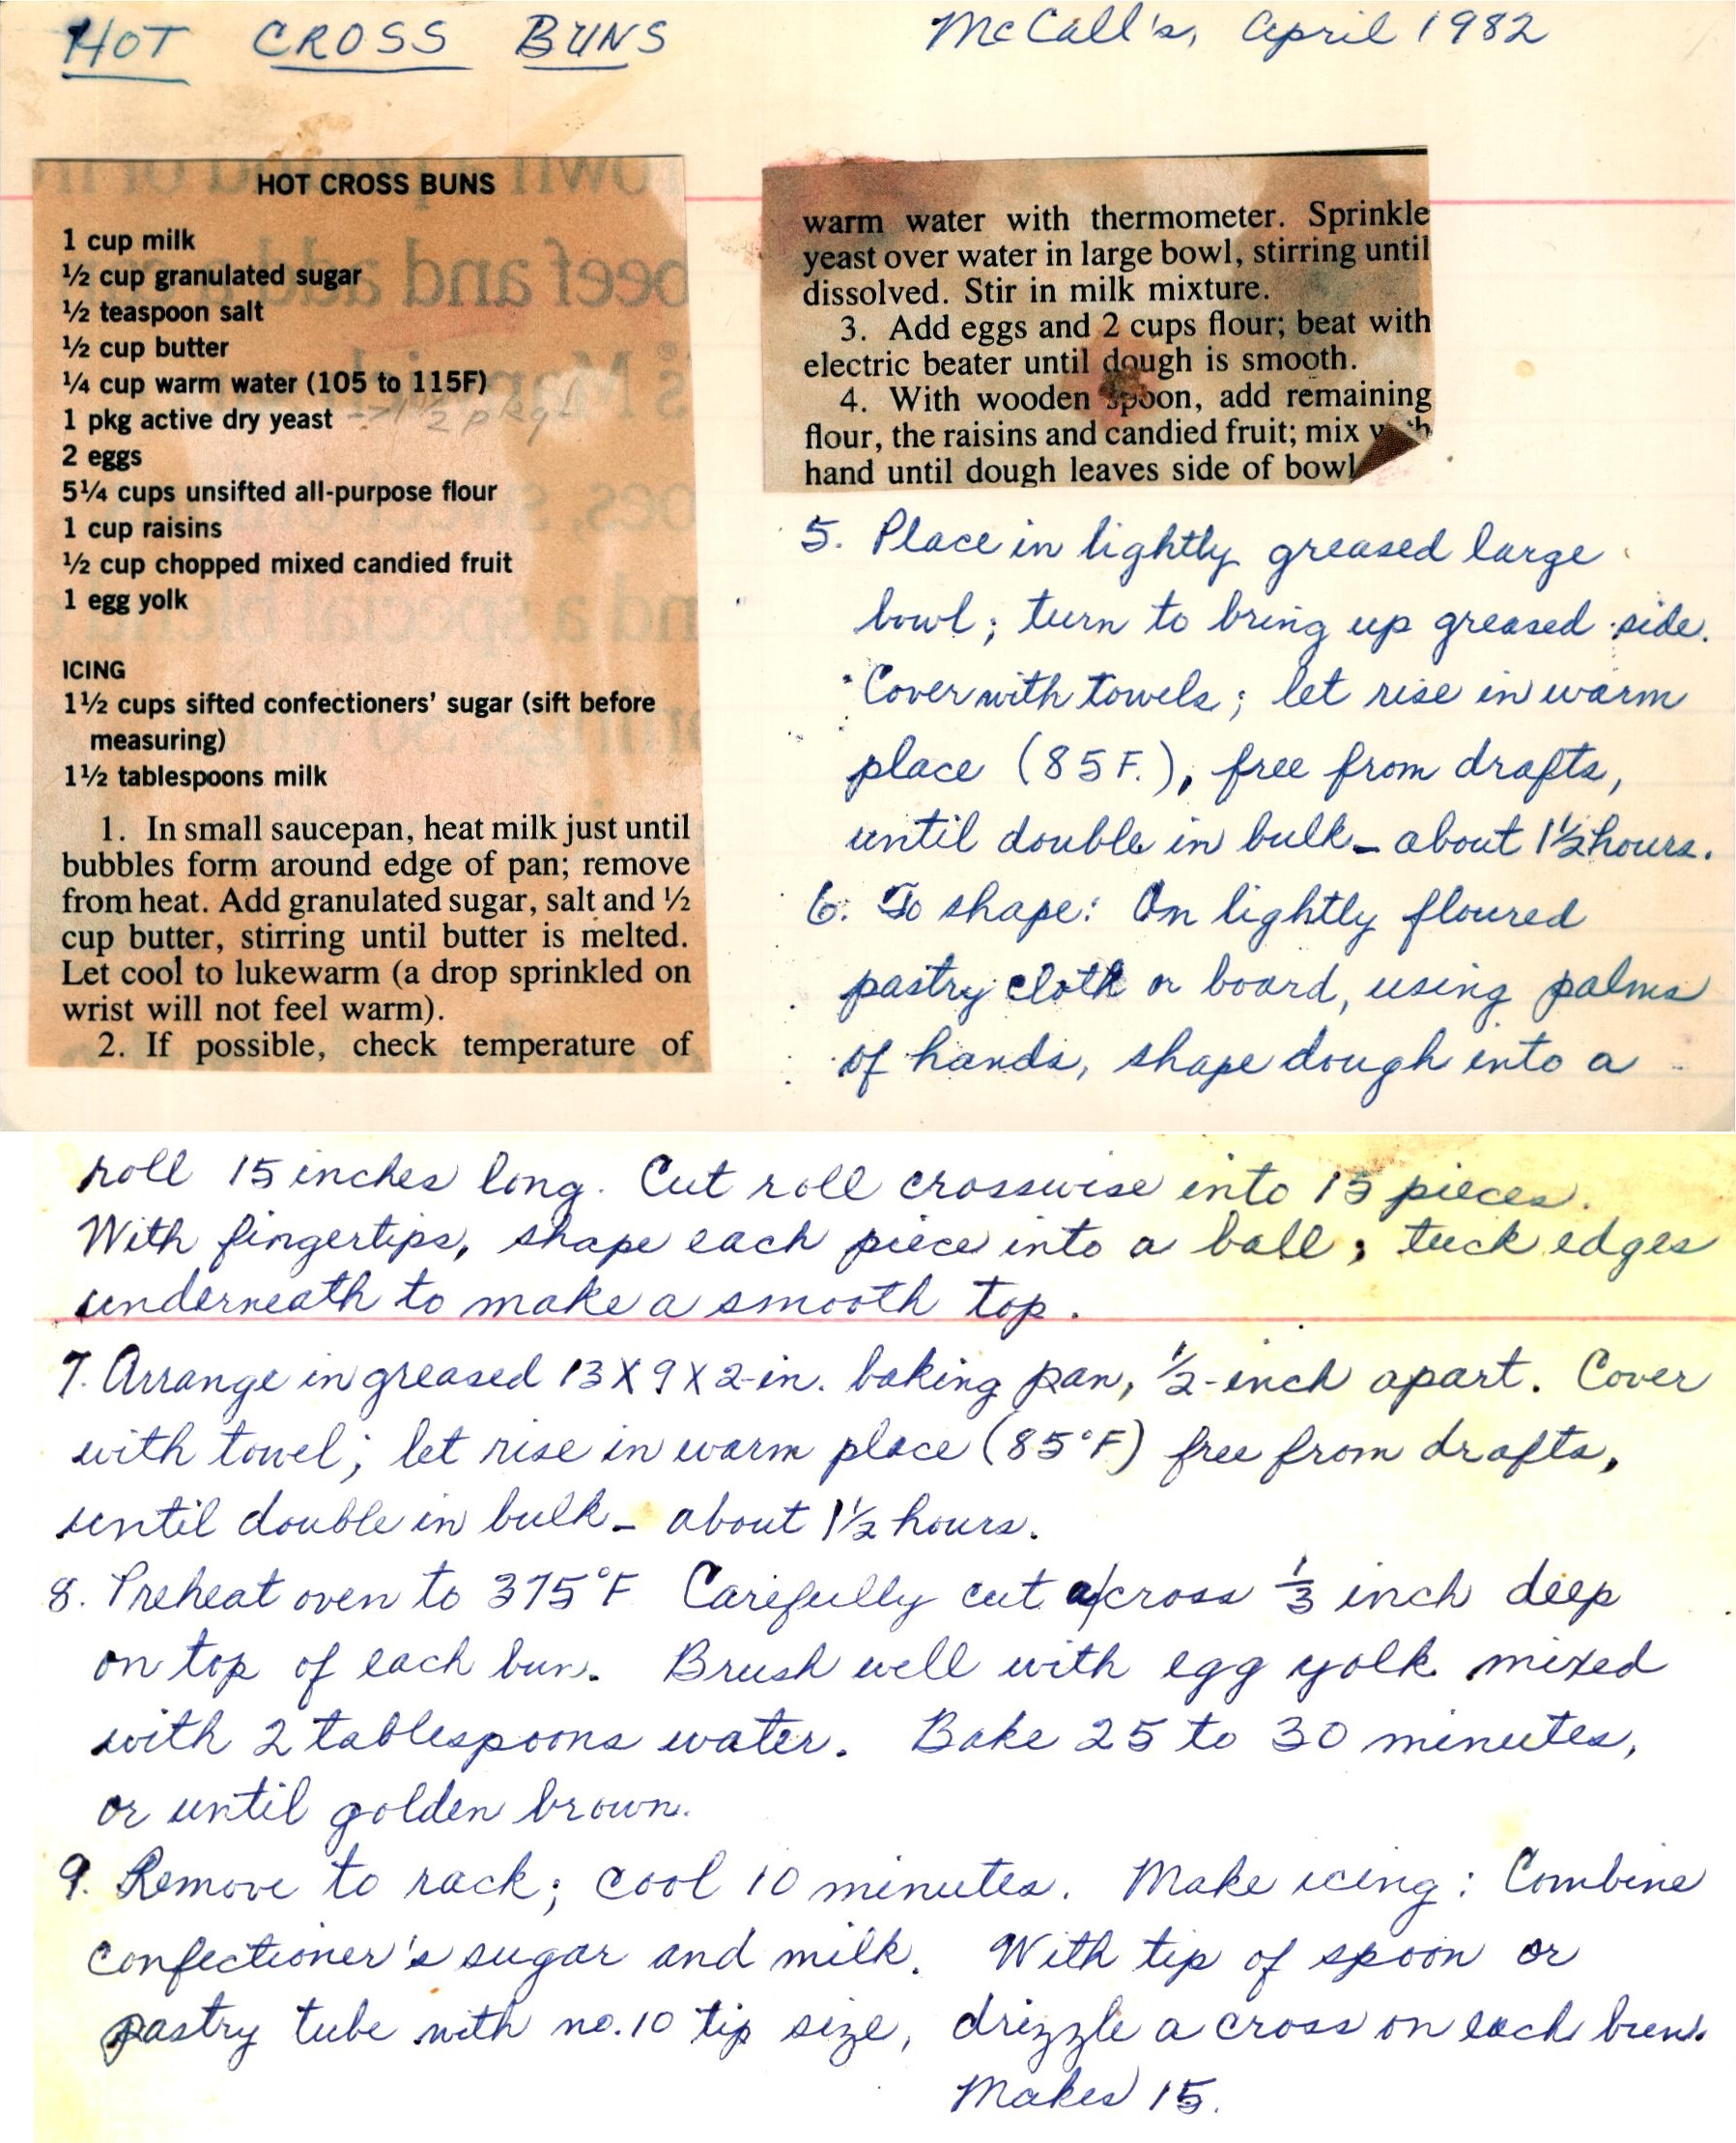 HOT CROSS BUNS
McCall's, April 1982
HOT CROSS BUNS
1 cup milk
½ cup granulated sugar
½ teaspoon salt
½ cup butter
¼ cup warm water (105 to 115F)
1 pkg active dry yeast -> 1½ pkg!
2 eggs
5¼ cups unsifted all-purpose flour
1 cup raisins
½ cup chopped mixed candied fruit
1 egg yolk
ICING
1½ cups sifted confectioners' sugar (sift before
measuring)
1½ tablespoons milk
1. In small saucepan, heat milk just until
bubbles form around edge of pan; remove
from heat. Add granulated sugar, salt and ½
cup butter, stirring until butter is melted.
Let cool to lukewarm (a drop sprinkled on
wrist will not feel warm).
2. If possible, check temperature of
warm water with thermometer. Sprinkle
yeast over water in large bowl, stirring until
dissolved. Stir in milk mixture.
3. Add eggs and 2 cups flour; beat with
electric beater until dough is smooth.
4. With wooden spoon, add remaining
flour, the raisins and candied fruit; mix with
hand until dough leaves side of bowl
5. Place in lightly greased large
bowl; turn to bring up greased side.
Cover with towels; let rise in warm
place (85F.), free from drafts,
until double in bulk – about 1½ hours.
6. To shape: On lightly floured
pastry cloth or board, using palms
of hands, shape dough into a
roll 15 inches long. Cut roll crosswise into 15 pieces.
With fingertips, shape each piece into a ball; tuck edges
underneath to make a smooth top.
7. Arrange in greased 13 X 9 X 2-in. baking pan, ½-inch apart. Cover
with towel; let rise in warm place (85°F) free from drafts,
until double in bulk – about 1½ hours.
8. Preheat oven to 375°F Carefully cut a/cross ⅓ inch deep
on top of each bun. Brush well with egg yolk mixed
with 2 tablespoons water. Bake 25 to 30 minutes,
or until golden brown.
9. Remove to rack; cool 10 minutes. Make icing: Combine
confectioner's sugar and milk. With tip of spoon or
pastry tube with no. 10 tip size, drizzle a cross on each bun.
Makes 15.